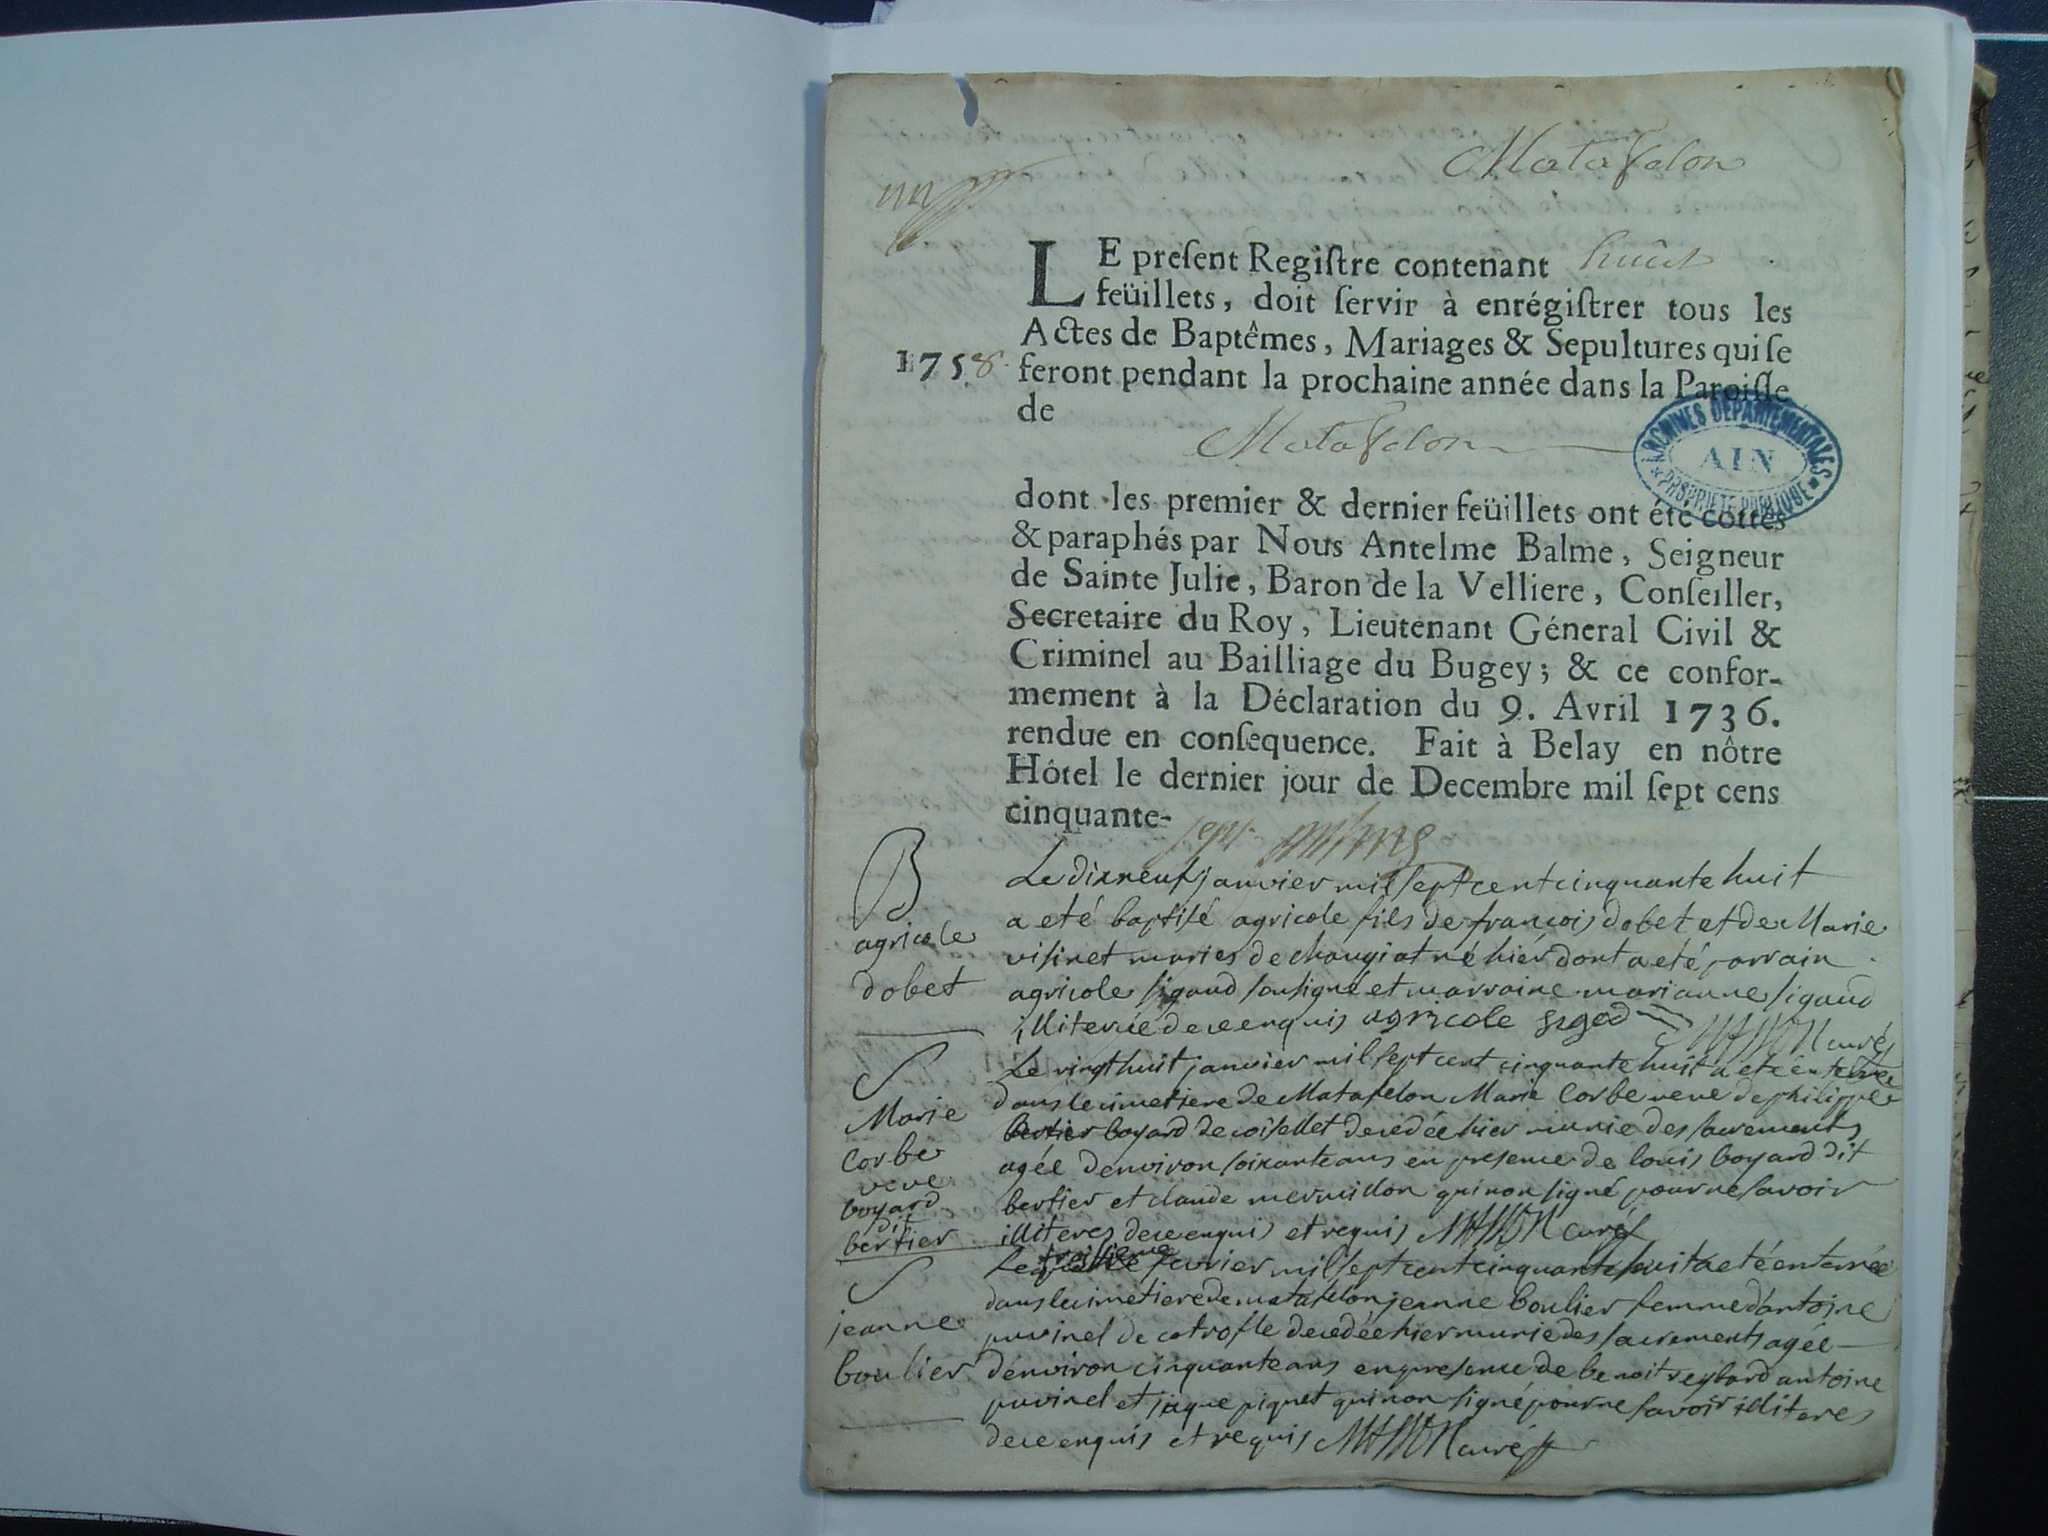 Matafelon
LE preſent Regiſtre contenant huit
feüillets, doit ſervir à enrégiſtrer tous les
Actes de Baptêmes, Mariages & Sepultures qui ſe
1758
feront pendant la prochaine année dans la Paroiſſe
de
Matafelon
ARCHIVES DEPARTEMENTALES
AIN
* PROPRIETE PUBLIQUE *
dont les premier & dernier feüillets ont été cottés
& paraphés par Nous Antelme Balme, Seigneur
de Sainte Julie, Baron de la Velliere, Conſeiller,
Secretaire du Roy, Lieutenant Géneral Civil &
Criminel au Bailliage du Bugey; & ce confor-
mement à la Déclaration du 9. Avril 1736.
rendue en conſequence. Fait à Belay en nôtre
Hôtel le dernier jour de Decembre mil ſept cens
cinquante-sept
B
agricole
dobet
Le dixneuf janvier mil sept cent cinquante huit
a eté baptisé agricole fils de françois dobet et de Marie
visinet maries de chougiat né hier dont a eté parrain
agricole sigaud sousigné et marraine marianne sigaud
illiterée de ce enquis agricole sigod MASSON curé
S
Marie
corbe
veve
boyard
dit
bertier
Le vingt huit janvier mil sept cent cinquante huit a eté enterrée
dans le cimetiere de Matafelon Marie Corbe veve de philippe
bertier boyard de coisellet decedée hier munie des sacrements
agée denviron soixante ans en presence de louis boyard dit
bertier et claude mermillon qui non signé pour ne savoir
illiteres de ce enquis et requis MASSON curé
S
jeanne
boulier
Le troisieme fevrier mil sept cent cinquante huit a eté enterrée
dans le cimetiere de matafelon jeanne boulier femme d'antoine
puvinel de cotrofle decedée hier munie des sacrements agée
denviron cinquante ans en presence de benoit reybard antoine
puvinel et jaque piquet qui non signé pour ne savoir illiteres
de ce enquis et requis MASSON curé